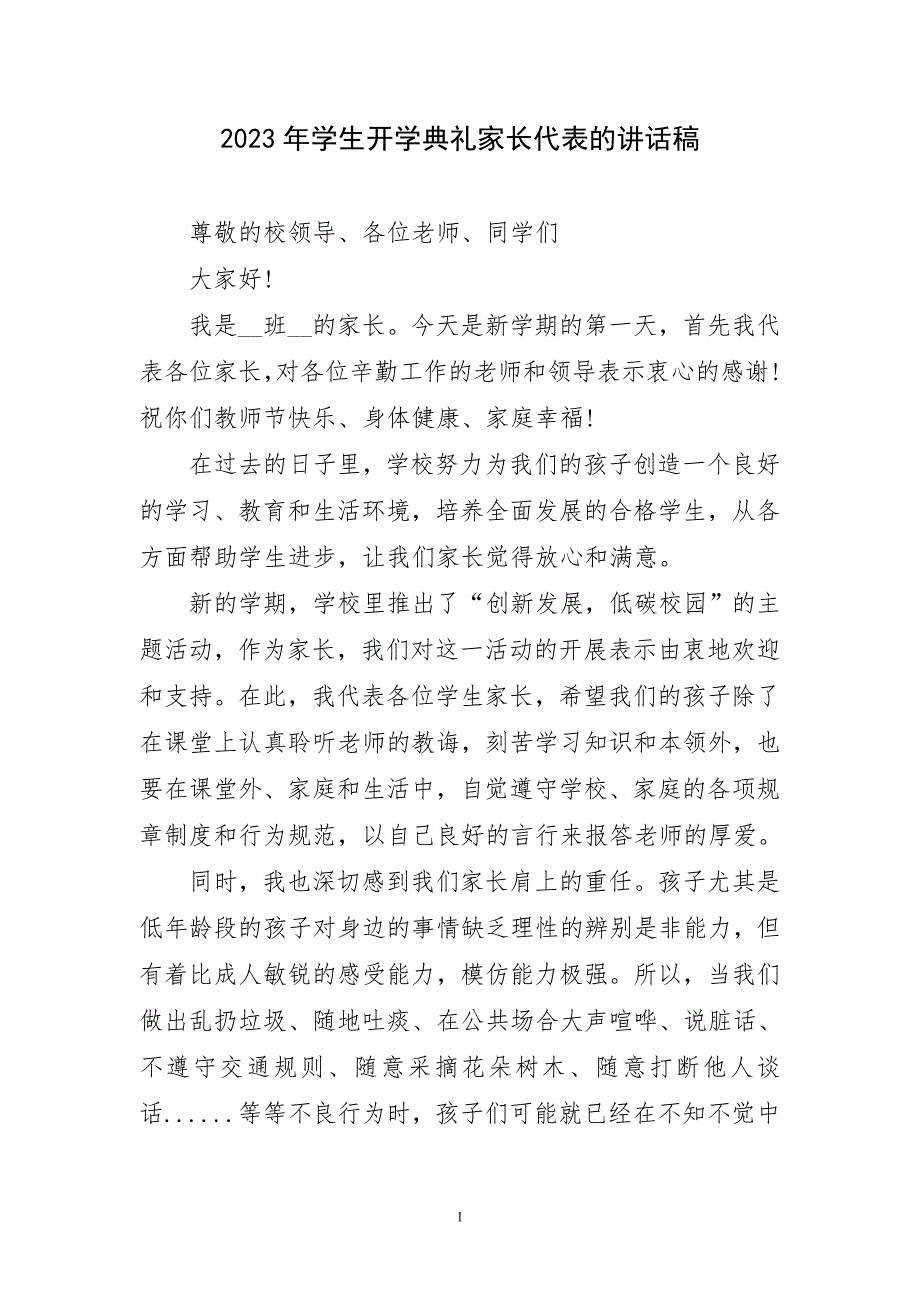 2023年学生开学典礼家长代表的讲话稿
尊敬的校领导、各位老师、同学们
大家好!
我是__班__的家长。今天是新学期的第一天，首先我代
表各位家长,对各位辛勤工作的老师和领导表示衷心的感谢!
祝你们教师节快乐、身体健康、家庭幸福!
在过去的日子里，学校努力为我们的孩子创造一个良好
的学习、教育和生活环境，培养全面发展的合格学生，从各
方面帮助学生进步，让我们家长觉得放心和满意。
新的学期，学校里推出了“创新发展，低碳校园”的主
题活动，作为家长，我们对这一活动的开展表示由衷地欢迎
和支持。在此，我代表各位学生家长，希望我们的孩子除了
在课堂上认真聆听老师的教诲，刻苦学习知识和本领外，也
要在课堂外、家庭和生活中，自觉遵守学校、家庭的各项规
章制度和行为规范，以自己良好的言行来报答老师的厚爱。
同时，我也深切感到我们家长肩上的重任。孩子尤其是
低年龄段的孩子对身边的事情缺乏理性的辨别是非能力，但
有着比成人敏锐的感受能力，模仿能力极强。所以，当我们
做出乱扔垃圾、随地吐痰、在公共场合大声喧哗、说脏话、
不遵守交通规则、随意采摘花朵树木、随意打断他人谈
话......等等不良行为时，孩子们可能就已经在不知不觉中
1